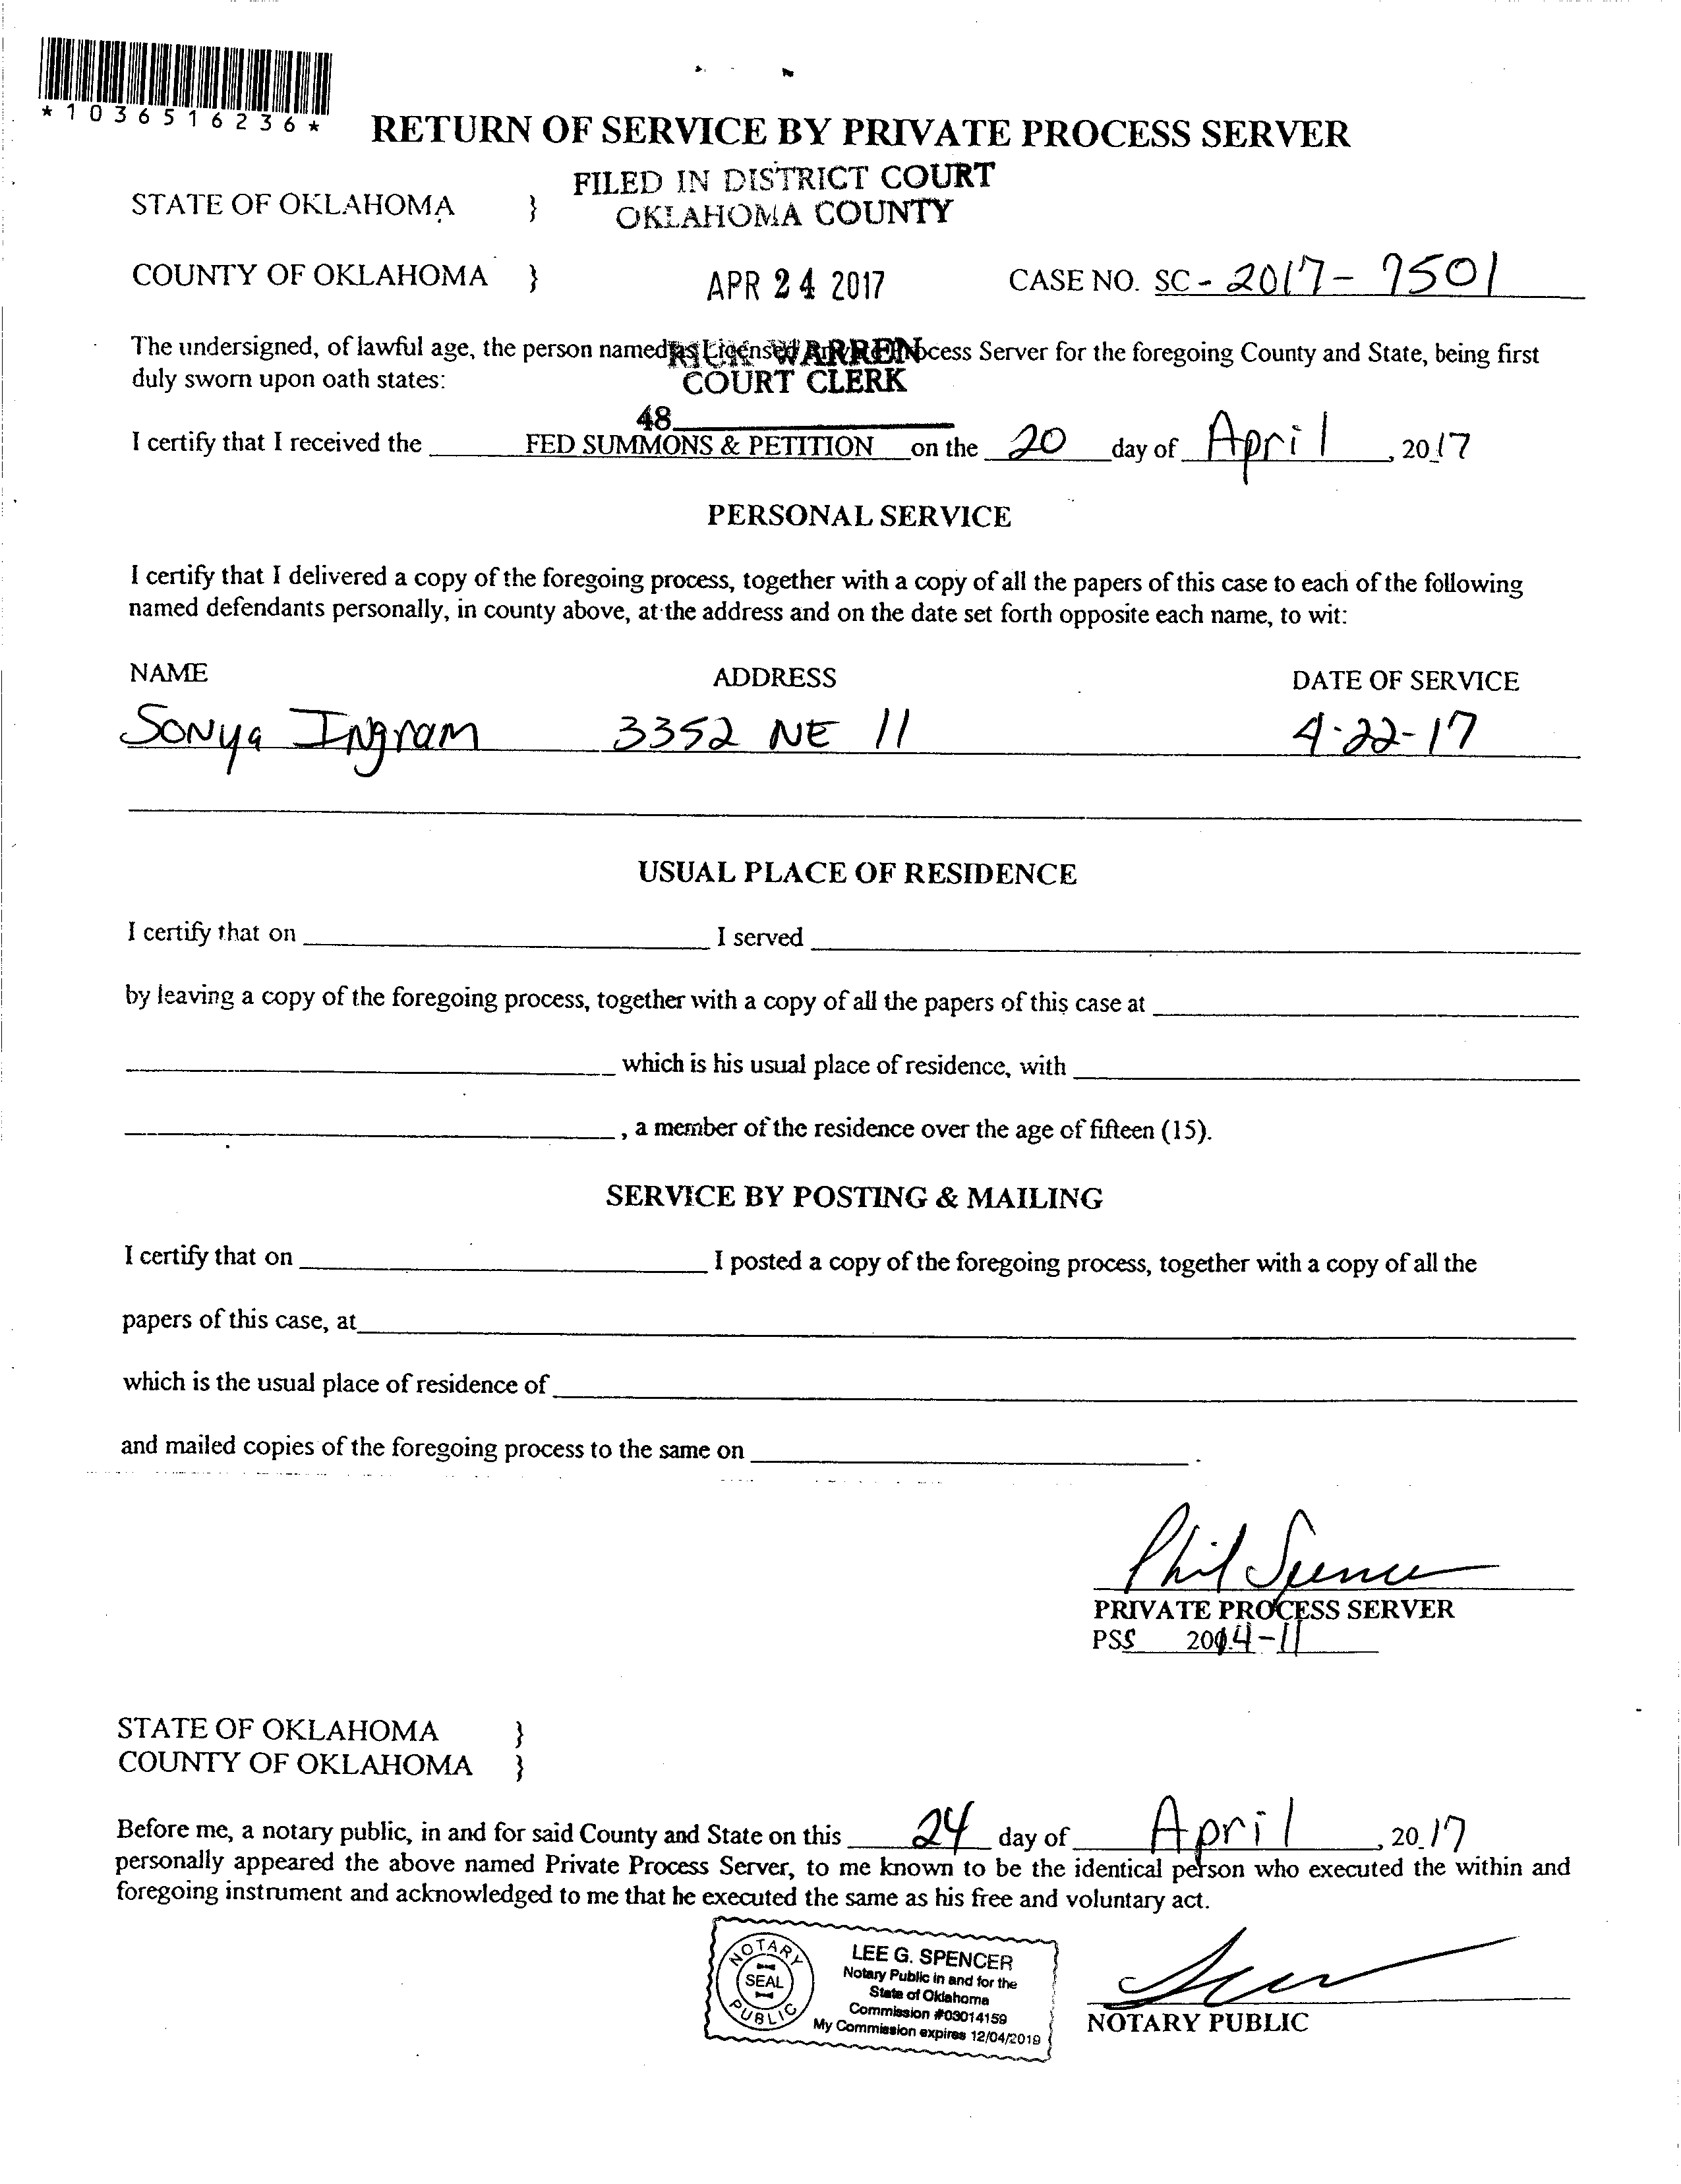 *1036516236*
RETURN OF SERVICE BY PRIVATE PROCESS SERVER
FILED IN DISTRICT COURT
OKLAHOMA COUNTY
STATE OF OKLAHOMA }
COUNTY OF OKLAHOMA } APR 24 2017 CASE NO. SC - 2017 - 9501
The undersigned, of lawful age, the person named as Licensed Process Server for the foregoing County and State, being first
RICK WARREN
duly sworn upon oath states: COURT CLERK
48
I certify that I received the FED SUMMONS & PETITION on the 20 day of April, 2017
PERSONAL SERVICE
I certify that I delivered a copy of the foregoing process, together with a copy of all the papers of this case to each of the following
named defendants personally, in county above, at the address and on the date set forth opposite each name, to wit:
NAME ADDRESS DATE OF SERVICE
Sonya Ingram 3352 NE 11 4-22-17
USUAL PLACE OF RESIDENCE
I certify that on I served
by leaving a copy of the foregoing process, together with a copy of all the papers of this case at
which is his usual place of residence, with
, a member of the residence over the age of fifteen (15).
SERVICE BY POSTING & MAILING
I certify that on I posted a copy of the foregoing process, together with a copy of all the
papers of this case, at
which is the usual place of residence of
and mailed copies of the foregoing process to the same on .
Phil Spencer
PRIVATE PROCESS SERVER
PSS 2014-11
STATE OF OKLAHOMA }
COUNTY OF OKLAHOMA }
Before me, a notary public, in and for said County and State on this 24 day of April, 2017
personally appeared the above named Private Process Server, to me known to be the identical person who executed the within and
foregoing instrument and acknowledged to me that he executed the same as his free and voluntary act.
NOTARY PUBLIC SEAL
LEE G. SPENCER
Notary Public in and for the
State of Oklahoma
Commission #03014159
My Commission expires 12/04/2019
NOTARY PUBLIC